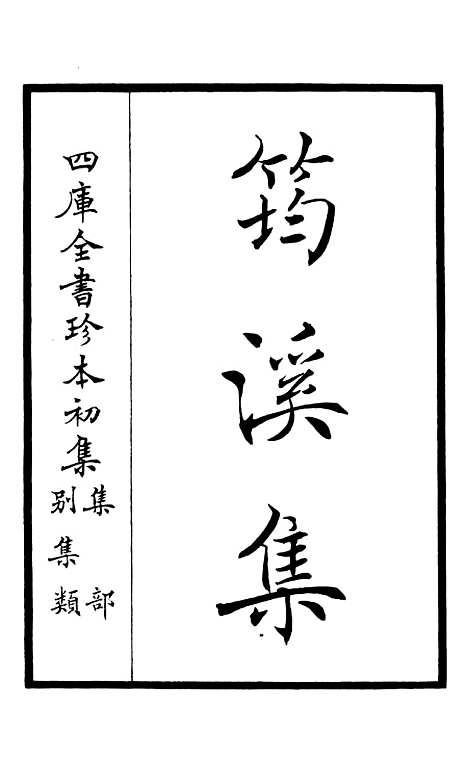 筠溪集
四庫全書珍本初集
集部
別集類